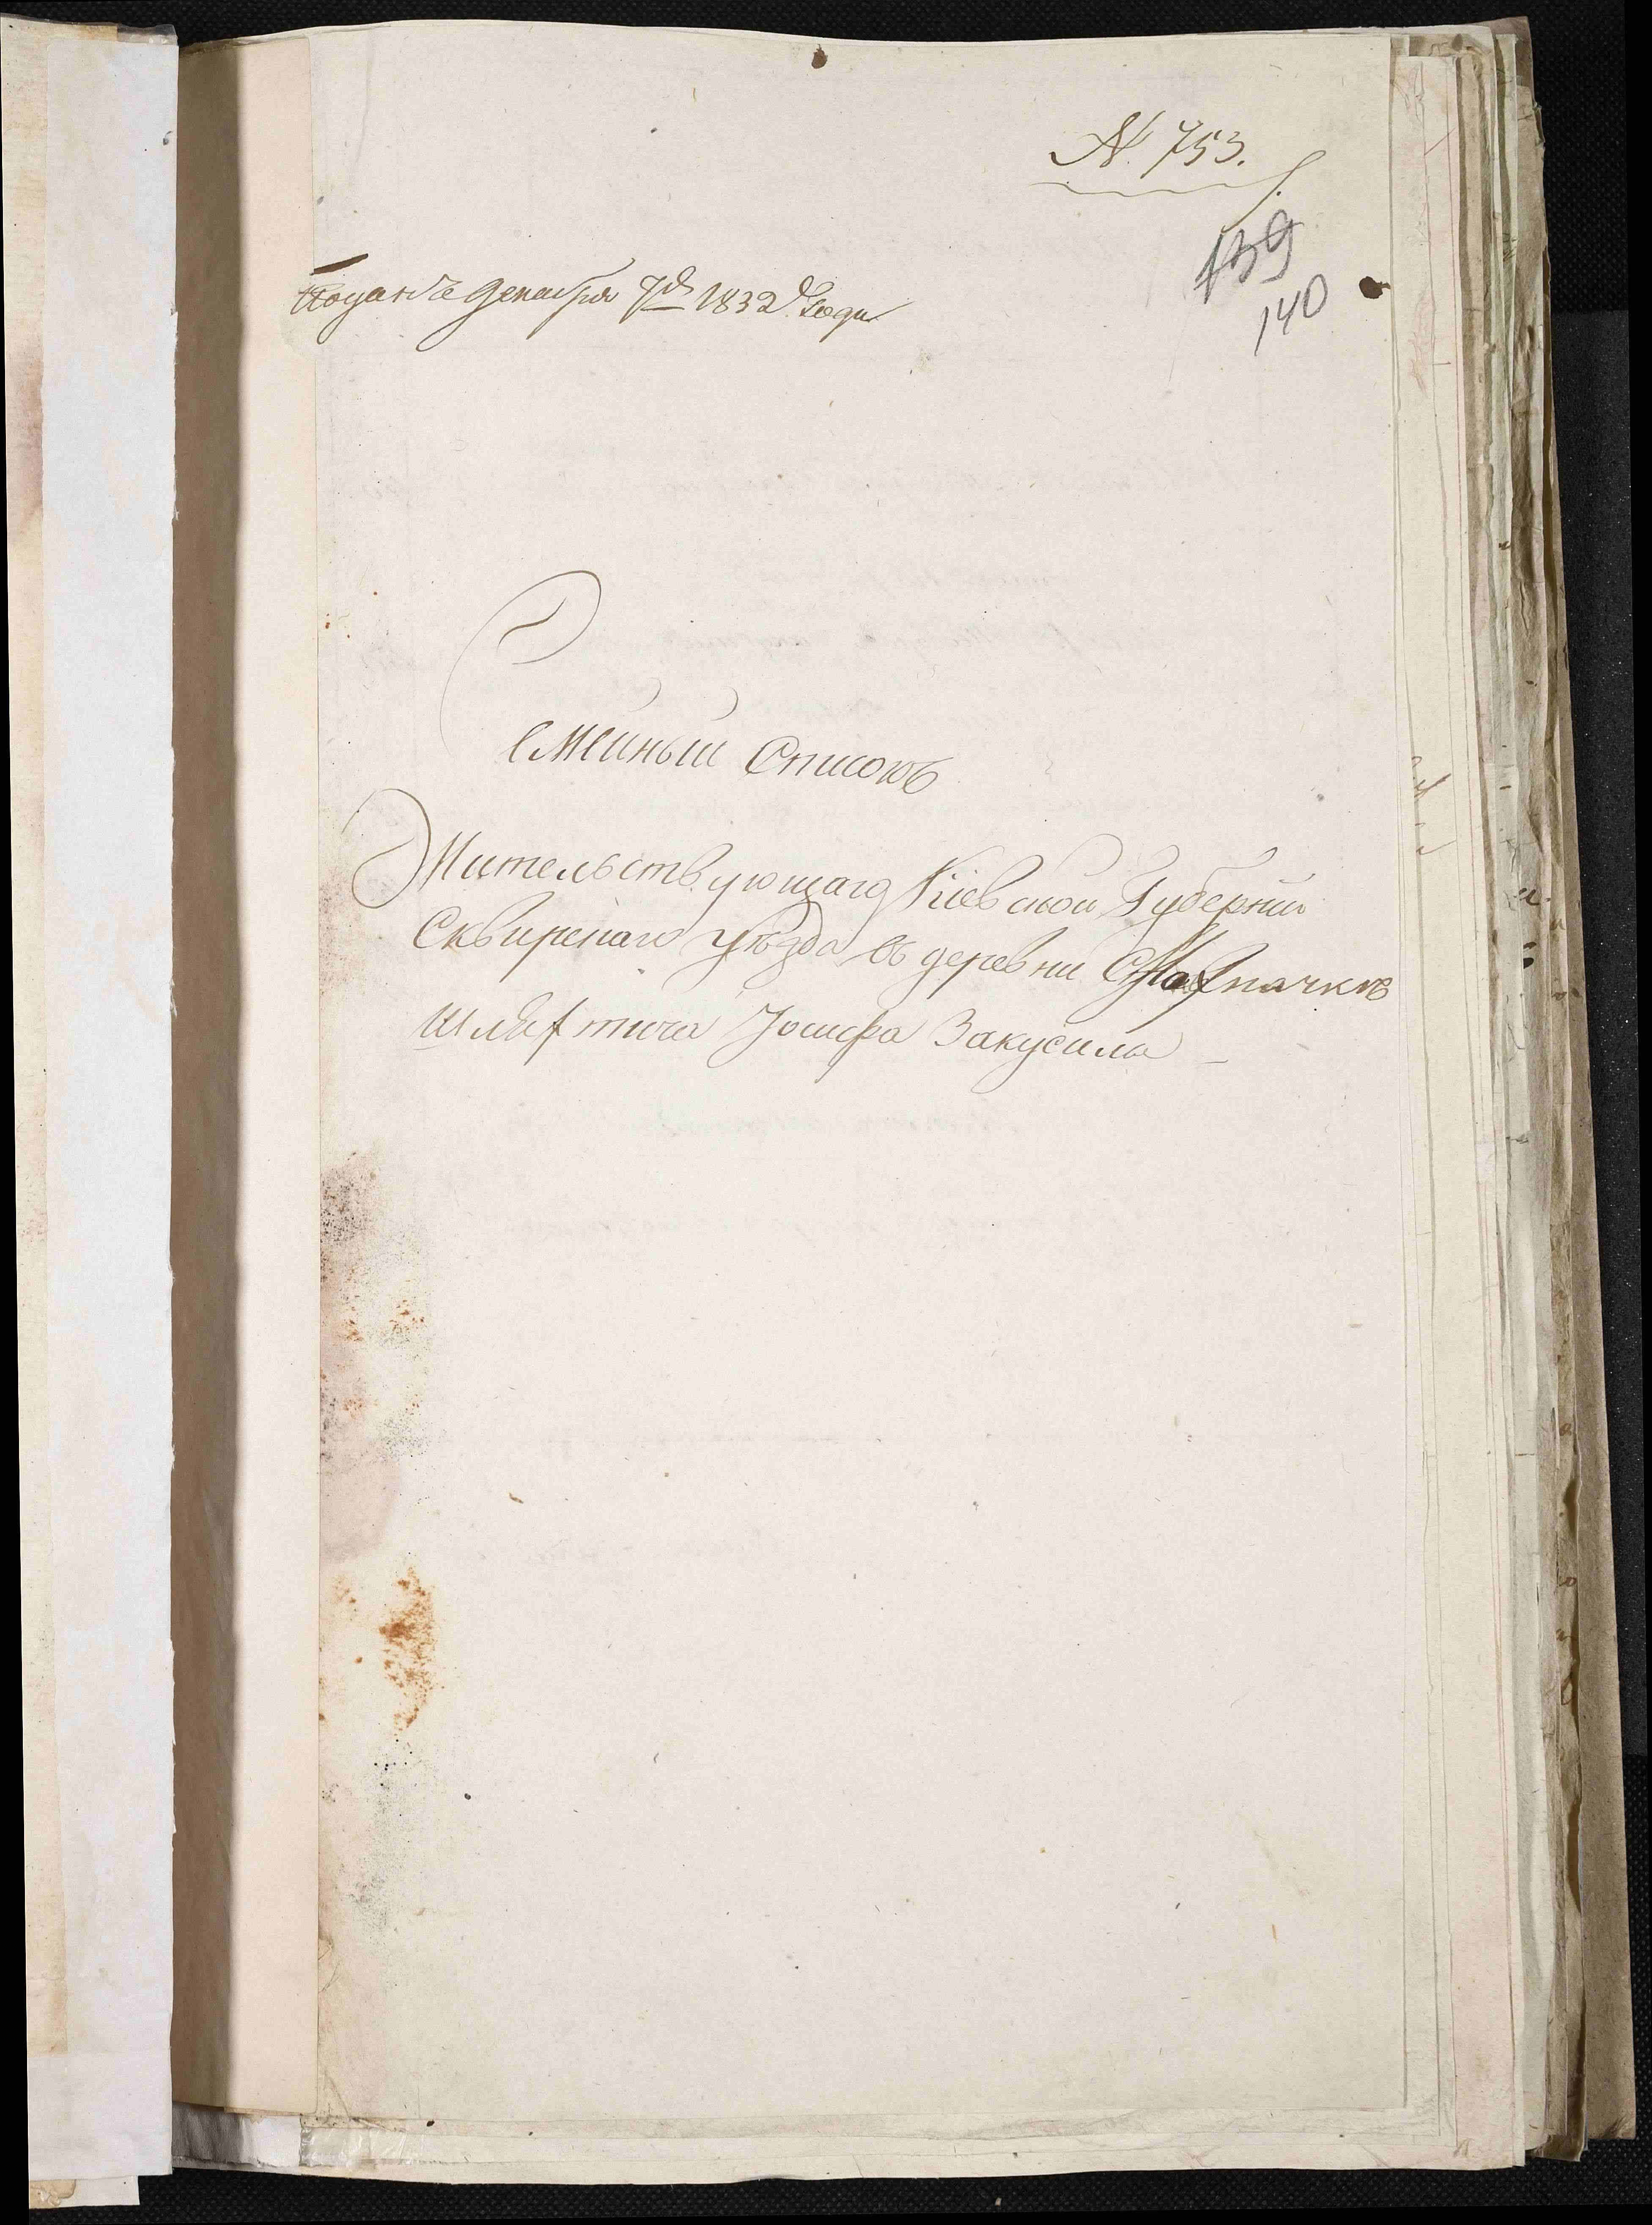 № 753.
139
140
Поданъ Декабря 7го 1832 Года
Семейный Списокъ
Жительствующаго Кіевской Губерніи
Сквирскаго уѢзда въ деревни
Шляхтича Іосифа Закусила